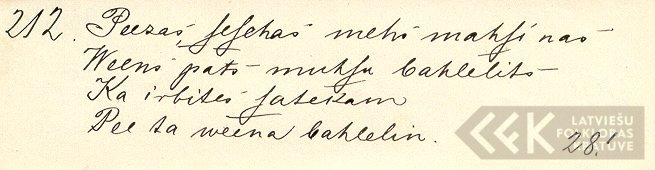 212. Peezas, seschas mehs mahsinas
Weens pats muhsu bahlelits
Ka irbites satekam
Pee ta weena bahlelin.
28.
LATVIEŠU
FOLKLORAS
KRĀTUVE